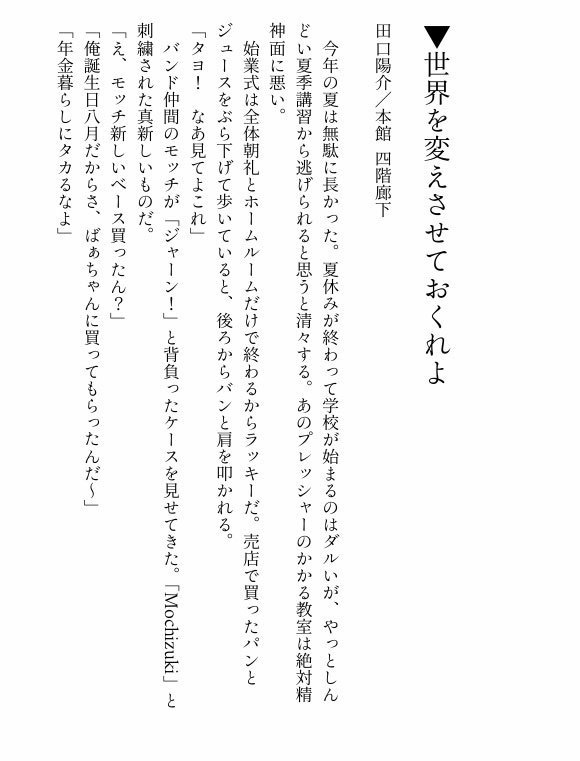 ▼世界を変えさせておくれよ
田口陽介／本館 四階廊下
今年の夏は無駄に長かった。夏休みが終わって学校が始まるのはダルいが、やっとしん
どい夏季講習から逃げられると思うと清々する。あのプレッシャーのかかる教室は絶対精
神面に悪い。
始業式は全体朝礼とホームルームだけで終わるからラッキーだ。売店で買ったパンと
ジュースをぶら下げて歩いていると、後ろからバンと肩を叩かれる。
「タヨ！　なあ見てよこれ」
バンド仲間のモッチが「ジャーン！」と背負ったケースを見せてきた。「Mochizuki」と
刺繍された真新しいものだ。
「え、モッチ新しいベース買ったん？」
「俺誕生日八月だからさ、ばぁちゃんに買ってもらったんだ～」
「年金暮らしにタカるなよ」